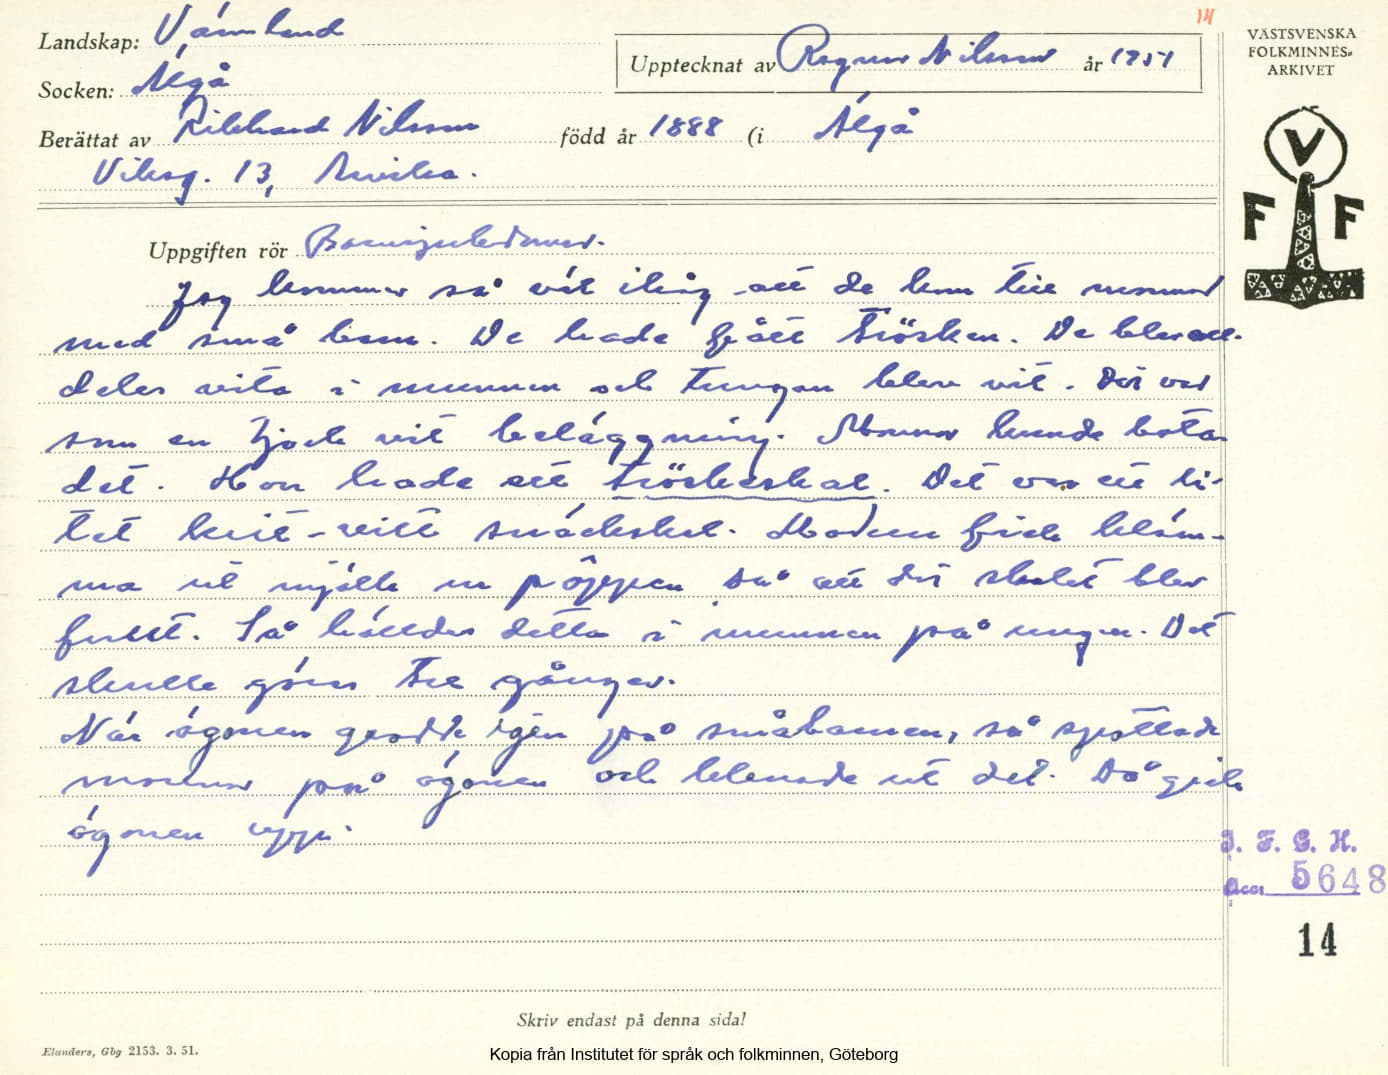 14
VÄSTSVENSKA
FOLKMINNES-
ARKIVET
V
F F
Landskap: Värmland
Upptecknat av Ragnar Nilsson år 1951
Socken: Älgå
Berättat av Rikhard Nilsson född år 1888 (i Älgå
Viksg. 13, Arvika.
Uppgiften rör
Jag kommer så väl ihåg att de kom till mormor
med små barn. De hade fått trösken. De blev all-
deles vita i munnen och tungan blev vit. Det var
som en tjock vit beläggning. Mormor kunde bota
det. Hon hade ett tröskeskal. Det var ett li-
tet krit-vitt snäckskal. Modern fick kläm-
ma ut mjölk ur pöppen så att det skalet blev
fullt. Så hälldes detta i munnen på ungen. Det
skulle göras tre gånger.
När ögonen grodde igen på småbarnen, så spottade
mormor på ögonen och kletade ut det. Då gick
ögonen upp.
I. F. G. H.
Acc. 5648
14
Skriv endast på denna sida!
Elanders, Gbg 2153. 3. 51.
Kopia från Institutet för språk och folkminnen, Göteborg